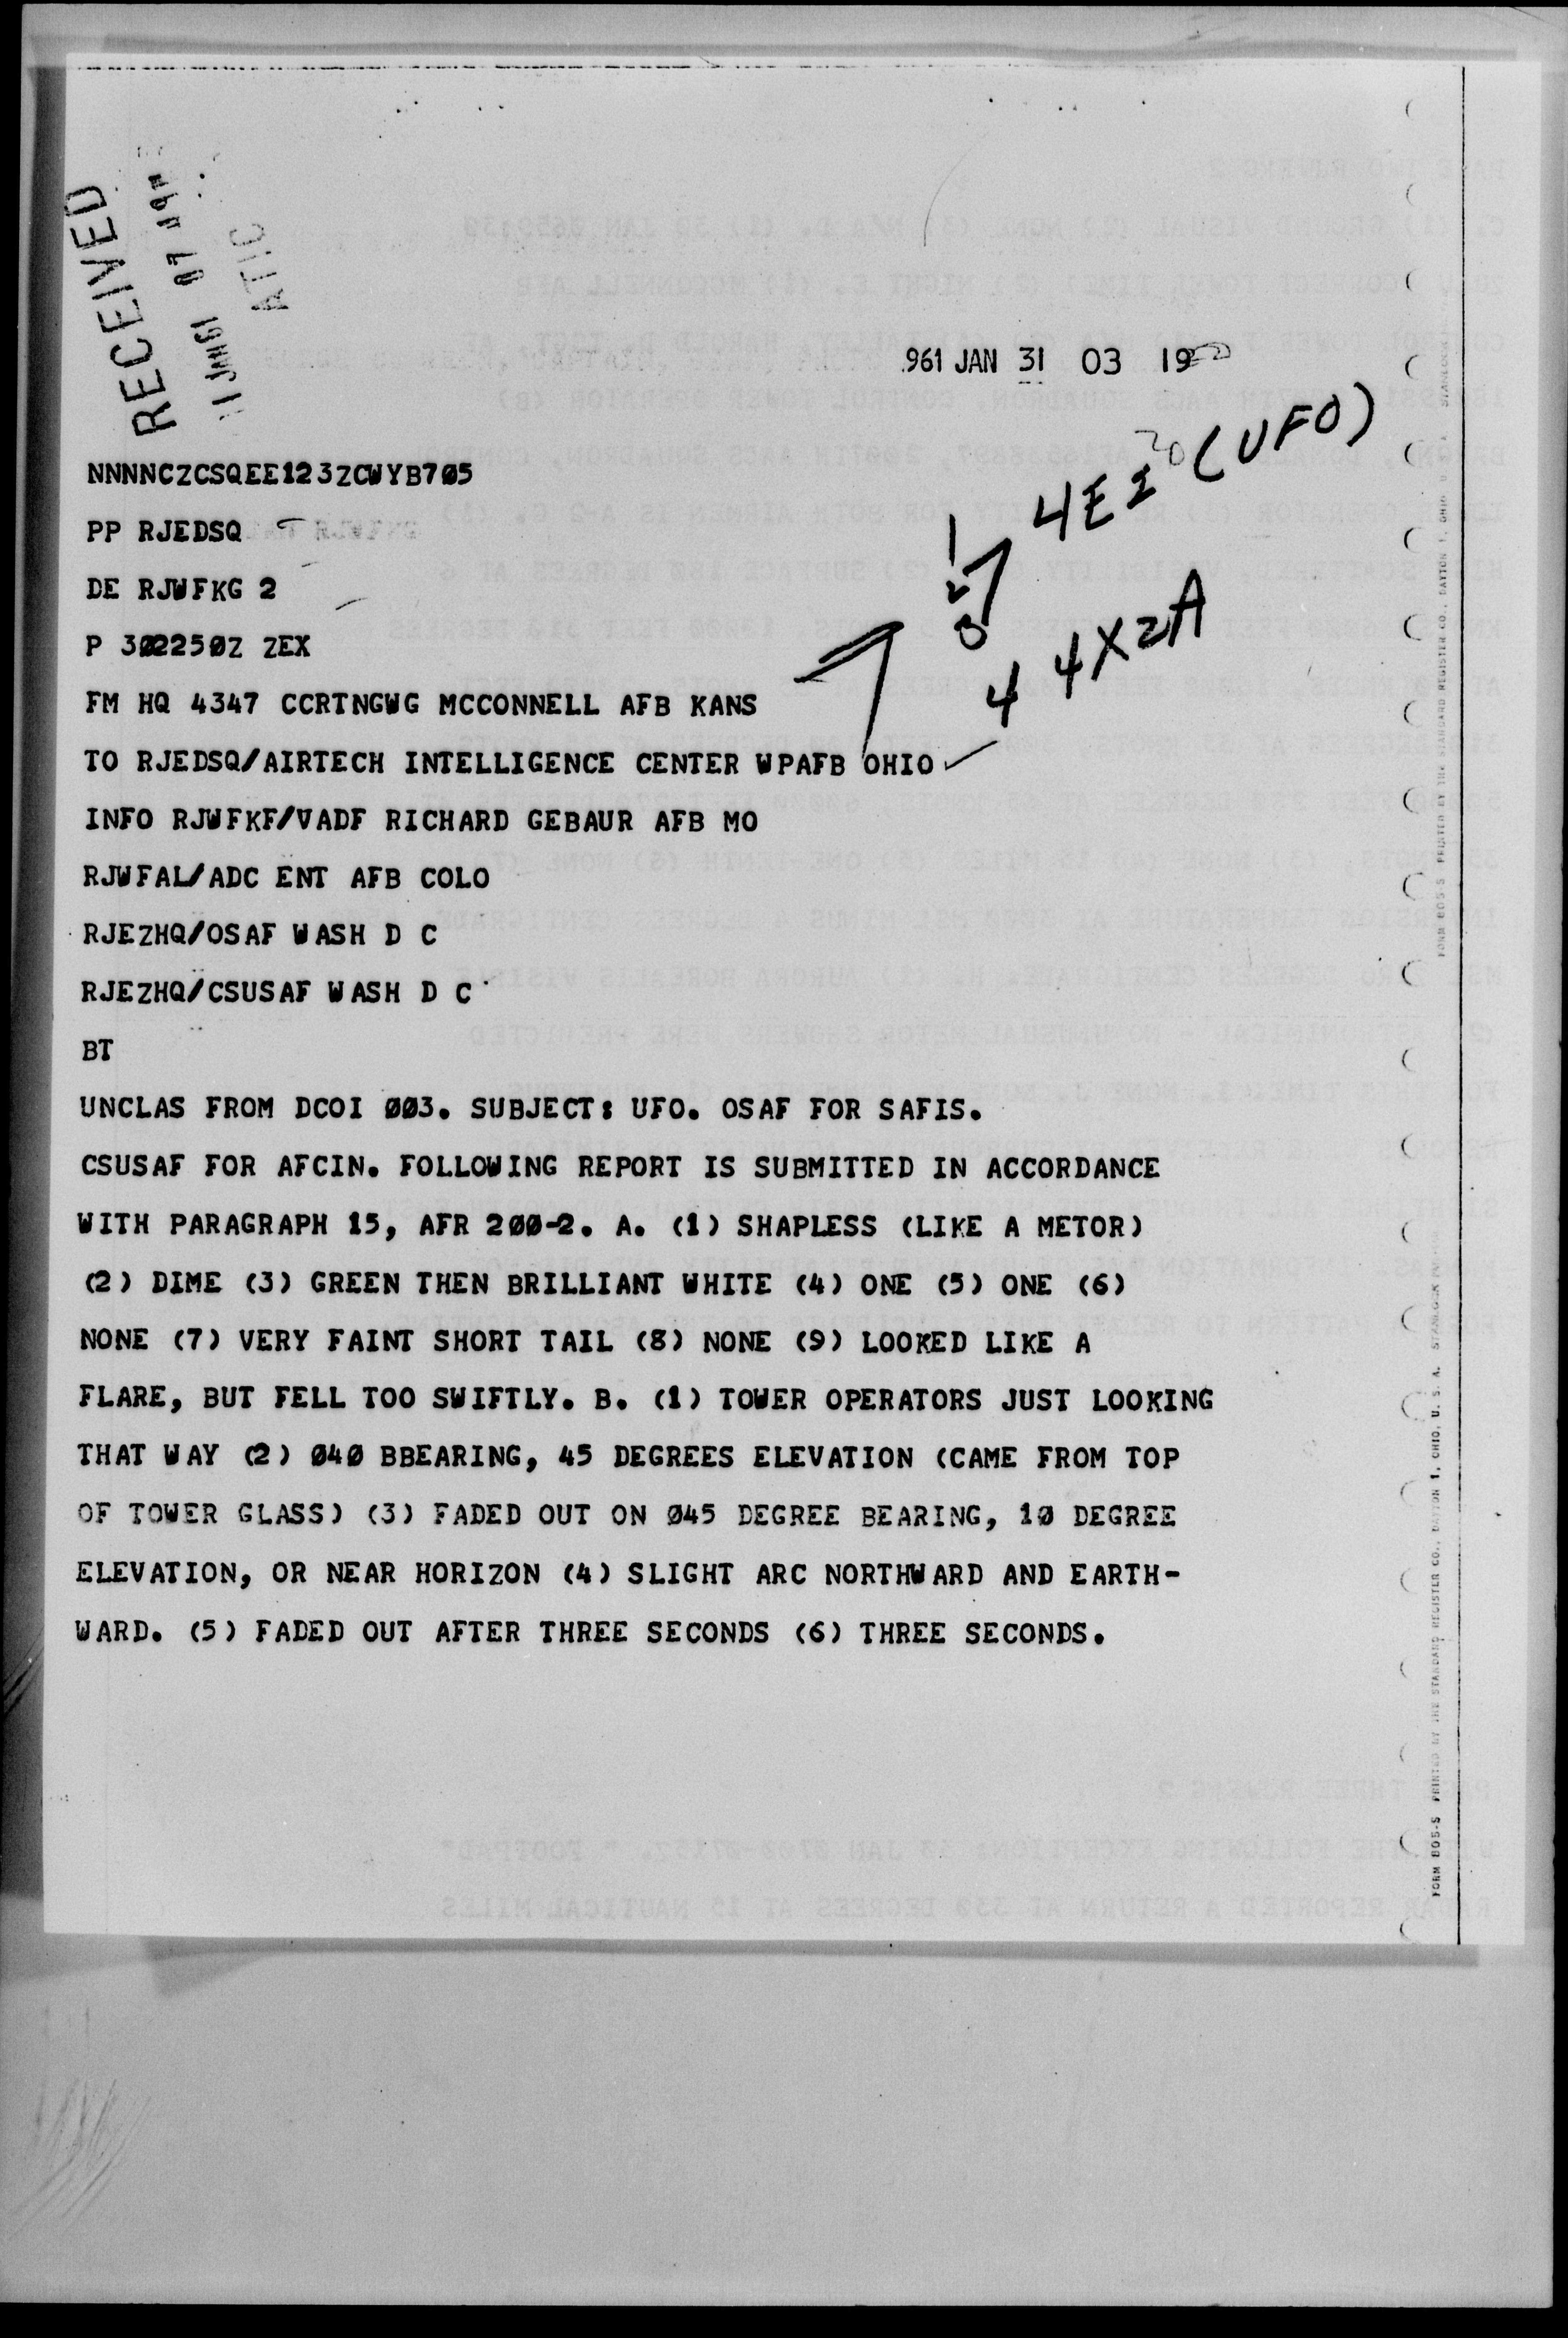 RECEIVED
ATIC
961 JAN 31 03 19
4E2 (UFO)
1
2
3
4 4X2A
NNNNCZCSQEE123ZCWYB705
PP RJEDSQ
DE RJWFKG 2
P 302250Z ZEX
FM HQ 4347 CCRTNGWG MCCONNELL AFB KANS
TO RJEDSQ/AIRTECH INTELLIGENCE CENTER WPAFB OHIO
INFO RJWFKF/VADF RICHARD GEBAUR AFB MO
RJWFAL/ADC ENT AFB COLO
RJEZHQ/OSAF WASH D C
RJEZHQ/CSUSAF WASH D C
BT
UNCLAS FROM DCOI 003. SUBJECT: UFO. OSAF FOR SAFIS.
CSUSAF FOR AFCIN. FOLLOWING REPORT IS SUBMITTED IN ACCORDANCE
WITH PARAGRAPH 15, AFR 200-2. A. (1) SHAPLESS (LIKE A METOR)
(2) DIME (3) GREEN THEN BRILLIANT WHITE (4) ONE (5) ONE (6)
NONE (7) VERY FAINT SHORT TAIL (8) NONE (9) LOOKED LIKE A
FLARE, BUT FELL TOO SWIFTLY. B. (1) TOWER OPERATORS JUST LOOKING
THAT WAY (2) 040 BBEARING, 45 DEGREES ELEVATION (CAME FROM TOP
OF TOWER GLASS) (3) FADED OUT ON 045 DEGREE BEARING, 10 DEGREE
ELEVATION, OR NEAR HORIZON (4) SLIGHT ARC NORTHWARD AND EARTH-
WARD. (5) FADED OUT AFTER THREE SECONDS (6) THREE SECONDS.
FORM BO5-S PRINTED BY THE STANDARD REGISTER CO., DAYTON 1, OHIO, U. S. A.